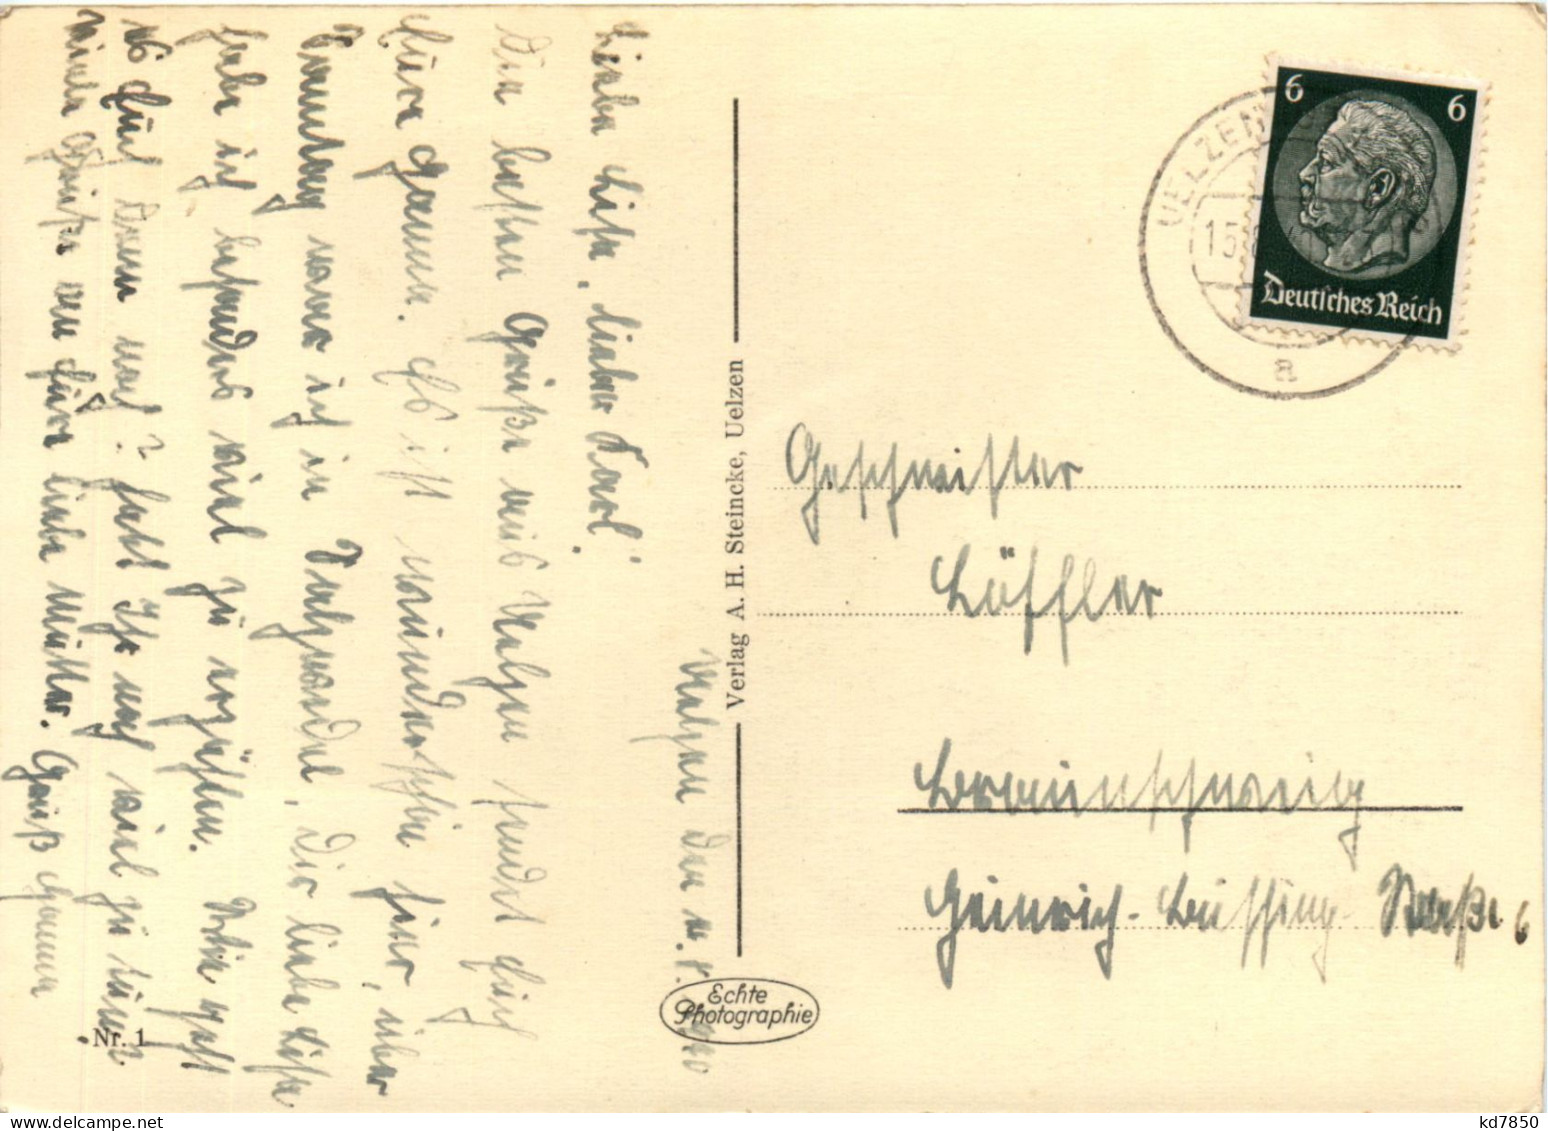 Uelzen, den 11.8.1940
Liebe Liese, lieber Karl!
Die besten Grüße aus Uelzen sendet Euch
Eure Hanna. Es ist wunderschön hier, über
Sonntag war ich in Salzwedel. Dir liebe Liese
habe ich besonders viel zu erzählen. Wie geht
es Euch denn noch? habt Ihr noch viel zu tun?
viele Grüße an Eure liebe Mutter. Gruß Hanna
Nr. 1
Verlag A. H. Steincke, Uelzen
Echte
Photographie
UELZEN
13.
a
6 6
Deutsches Reich
Geschwister
Löffler
Braunschweig
Heinrich-Büssing-Straße 6
kd7850